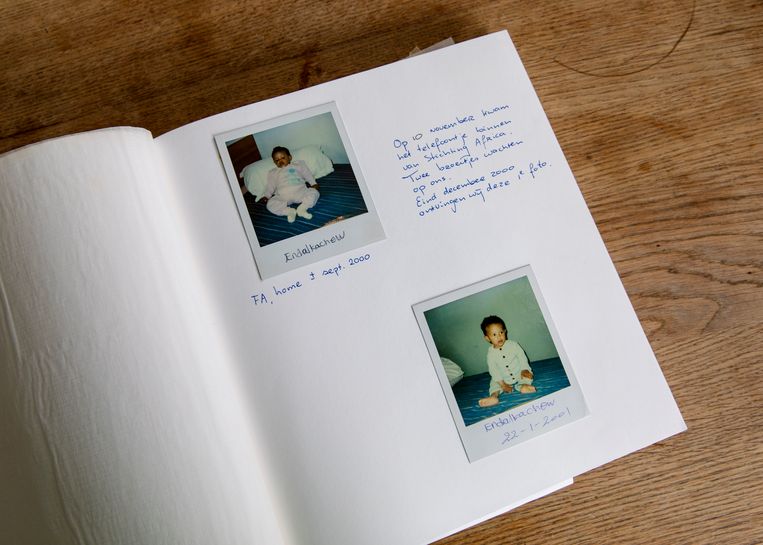 Endalkachew
FA, home ± sept. 2000
Op 10 november kwam
het telefoontje binnen
van Stichting Afrika.
Twee broertjes wachten
op ons.
Eind december 2000
ontvingen wij deze 1e foto.
Endalkachew
22-1-2001